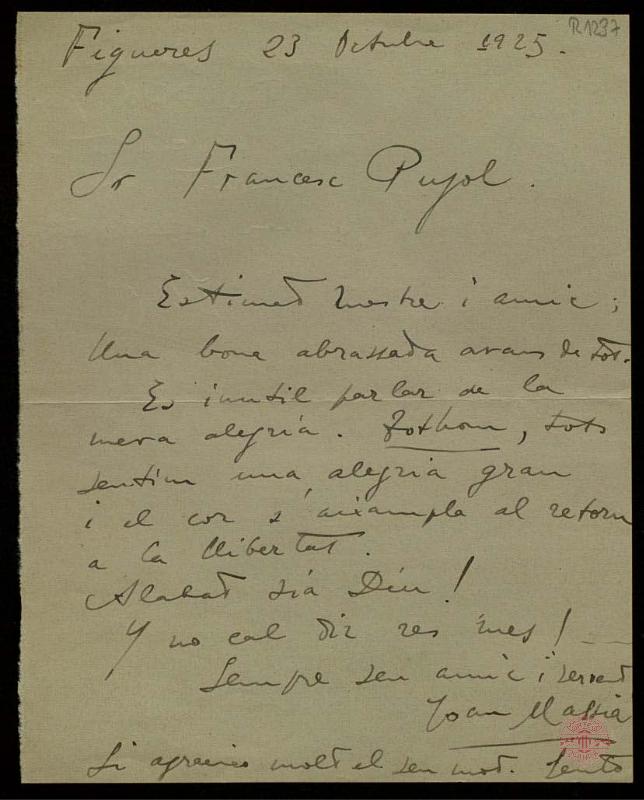 R1237
Figueres 23 Octubre 1925.
Sr Francesc Pujol.
Estimat mestre i amic;
Una bona abrassada avans de tot.
Es inutil parlar de la
meva alegria. Tothom, tots
sentim una alegria gran
i el cor s'aixampla al retorn
a la llibertat.
Alabat sia Deu!
Y no cal dir res mes!
Sempre seu amic i servent
Joan Massia
Li agraeixo molt el seu mot.